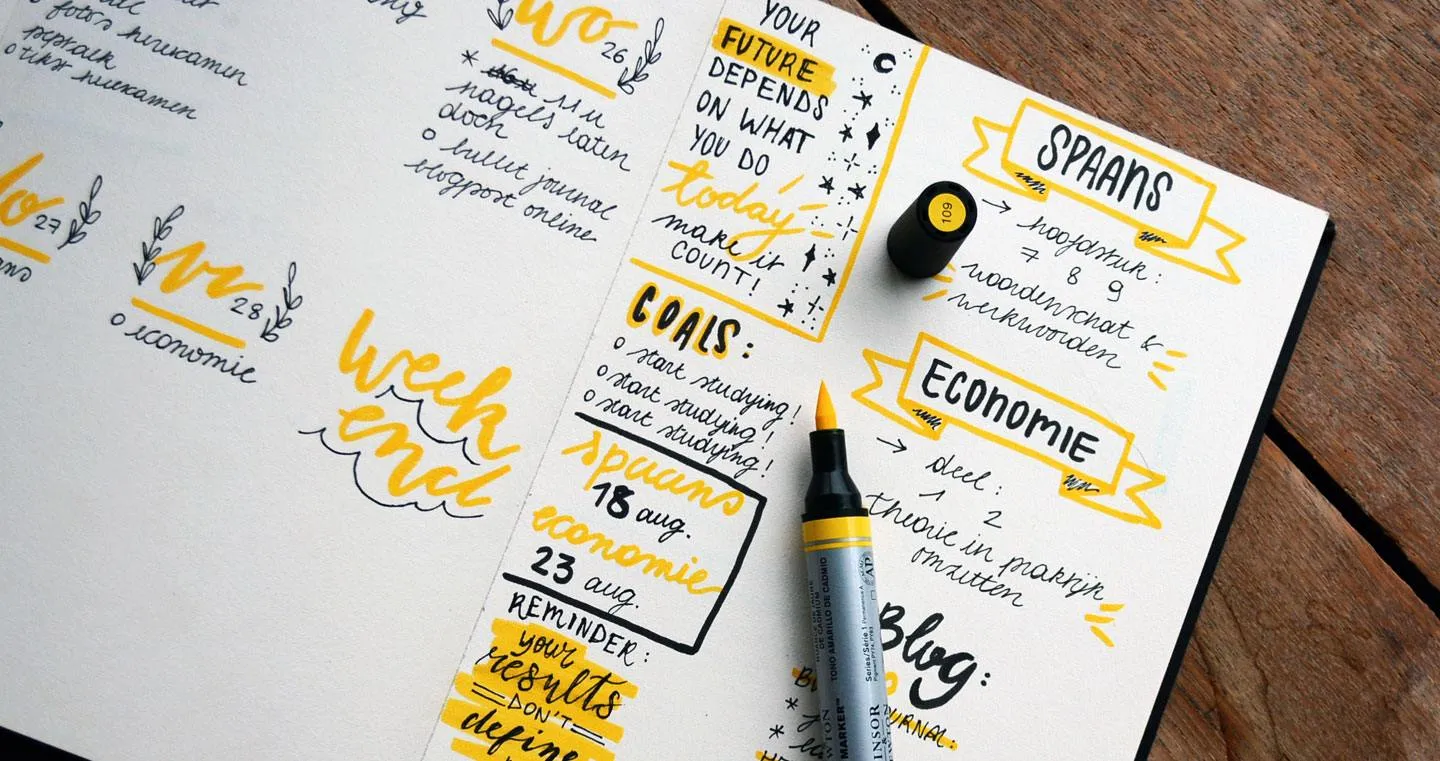 o fotos herexamen
peptalk
o tikst herexamen
wo
26
* 11 u
nagels laten
doen
o bullet journal
blogpost online
do
27
vr
28
o economie
week
end
YOUR
FUTURE
DEPENDS
ON WHAT
YOU DO
today
make it
COUNT!
GOALS:
o start studying!
o start studying!
o start studying!
spaans
18 aug.
economie
23 aug.
REMINDER:
your
results
DON'T
define
SPAANS
→ hoofdstuk:
7 8 9
woordenschat &
werkwoorden
ECONOMIE
→ deel:
1 2
theorie in praktijk
omzetten
Blog:
URNAL:
109
TONO AMARILLO DE CADMIO
DE CADMIUM
Series/Série 1
AP
MARKER™
INSOR